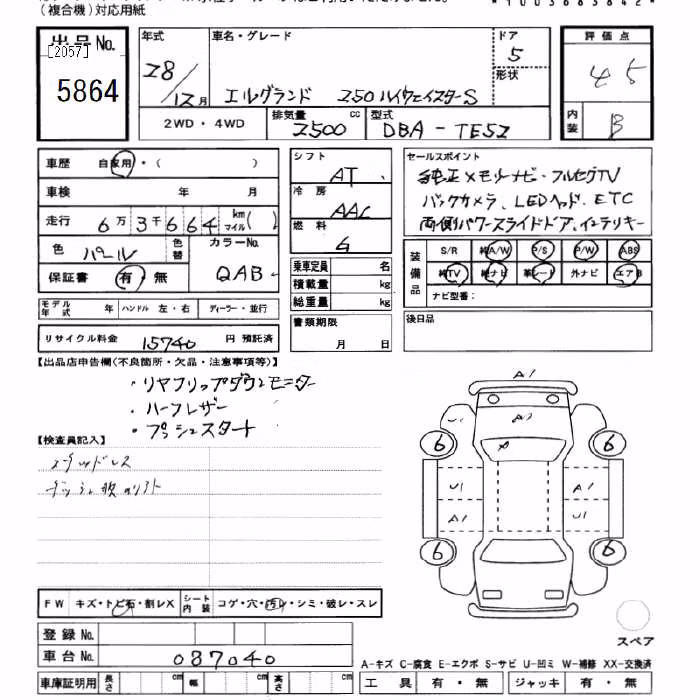 (複合機)対応用紙
*1003683842*
出品No.
[2057]
5864
年式
28/12月
車名・グレード
エルグランド 250ハイウェイスターS
ドア
5
形状
評価点
4.5
内装
B
2WD・4WD
排気量
2500
cc
型式
DBA-TE52
車歴 自家用・( )
車検 年 月
走行 6万3千664 km マイル( )
色 パール 色替
カラーNo. QAB
保証書 有 無
モデル年式 年 ハンドル 左・右 ディーラー・並行
リサイクル料金 15740 円 預託済
シフト
AT
冷房
AAC
燃料
G
乗車定員 名
積載量 kg
総重量 kg
書類期限
月 日
セールスポイント
純正メモリーナビ・フルセグTV
バックカメラ、LEDヘッド、ETC
両側パワースライドドア、インテリキー
装備品
S/R 純A/W P/S P/W ABS
純TV 純ナビ 革シート 外ナビ エアB
ナビ型番:
後日品
【出品店申告欄(不良箇所・欠品・注意事項等)】
・リヤフリップダウンモニター
・ハーフレザー
・プッシュスタート
【検査員記入】
A1
U1
A2
6
6
U1
A1
A1
U1
6
6
スペア
FW キズ・トビ石・割レX シート内装 コゲ・穴・汚レ・シミ・破レ・スレ
登録No.
車台No. 087040
A-キズ C-腐食 E-エクボ S-サビ U-凹ミ W-補修 XX-交換済
車庫証明用 長さ cm 幅 cm 高さ cm
工具 有・無 ジャッキ 有・無